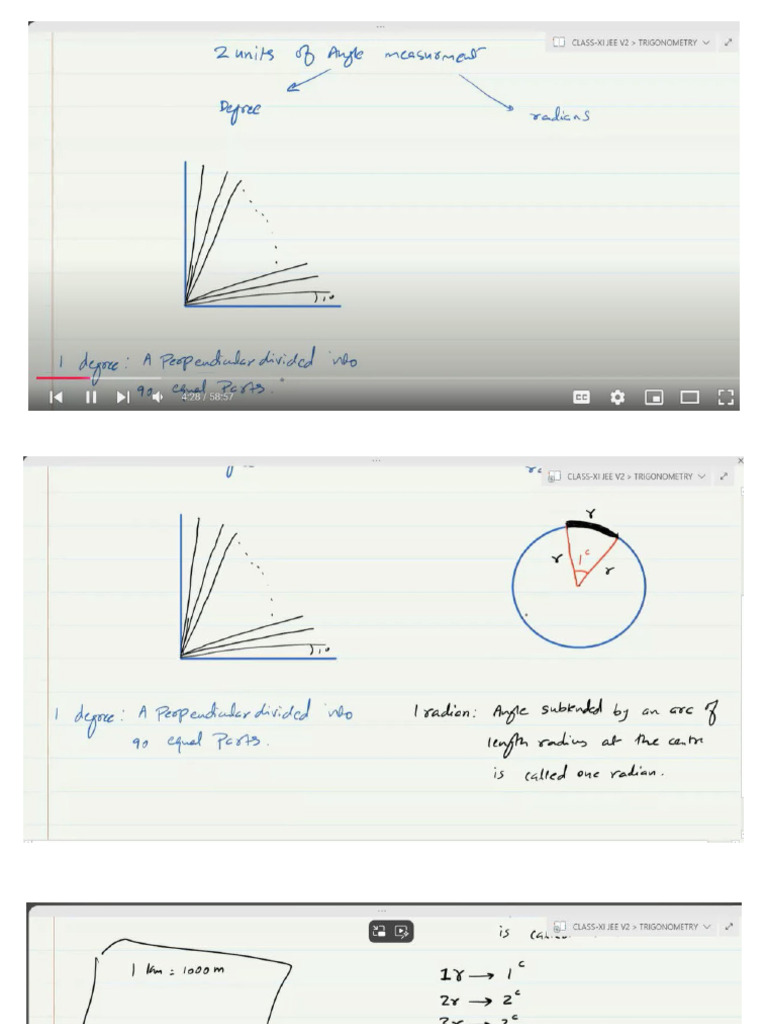 CLASS-XI JEE V2 > TRIGONOMETRY
2 units of Angle measurment
Degree
radians
1°
1 degree: A Perpendicular divided into
90 equal Parts.
4:28 / 58:57
CC
CLASS-XI JEE V2 > TRIGONOMETRY
r
r
1ᶜ
r
1°
1 degree: A Perpendicular divided into
90 equal Parts.
1 radian: Angle subtended by an arc of
length radius at the centre
is called one radian.
CLASS-XI JEE V2 > TRIGONOMETRY
is
1 km = 1000 m
1r → 1ᶜ
2r → 2ᶜ